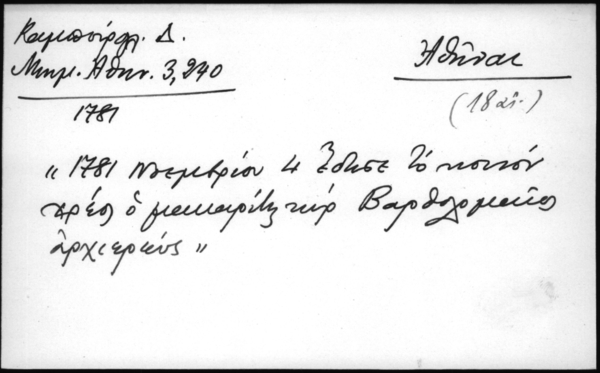 Καμπούρογλ. Δ.
Μνημ. Αθην. 3, 240
Ἀθῆναι
1781
(18 αἰ.)
"1781 Νοεμβρίου 4 ἔδησε τό κοινόν
χρέος ὁ μακαρίτης κύρ Βαρθολομαῖος
ἀρχιερεύς"